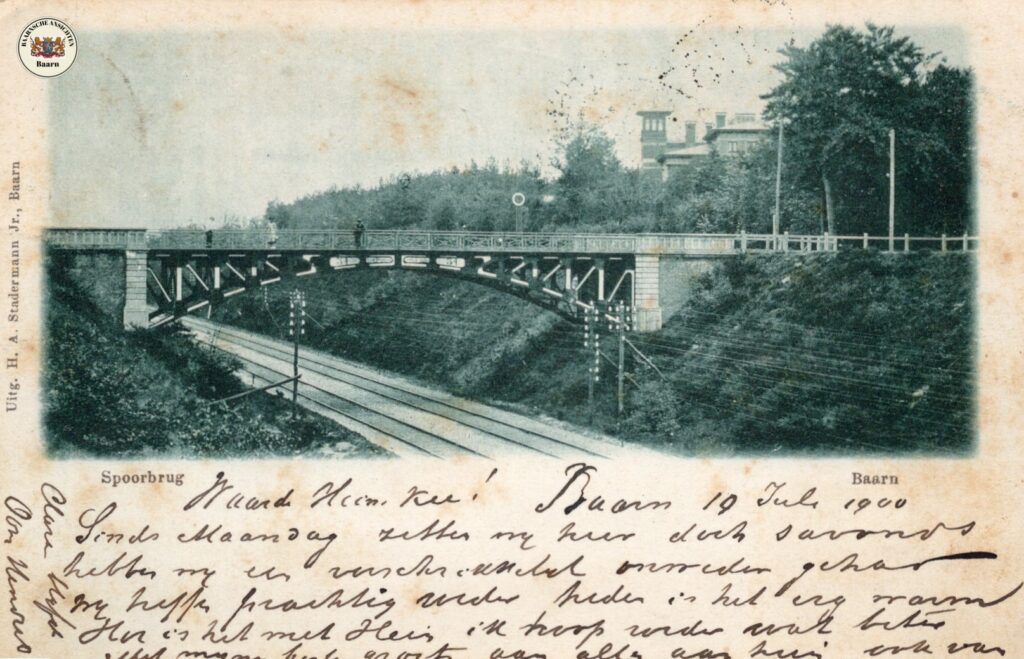 BAARNSCHE ANSICHTEN
Baarn
Uitg. H. A. Stadermann Jr., Baarn
Spoorbrug
Baarn
Waarde Heim Kee! Baarn 19 Juli 1900
Sinds Maandag zitten wij hier doch savonds
hebben wij een verschrikkelik onweder gehad
wij heffen prachtig weder heden is het erg warm
Hoe is het met Hein ik hoop weder wat beter
met mijne groete aan alle aan hein ook van
Oom